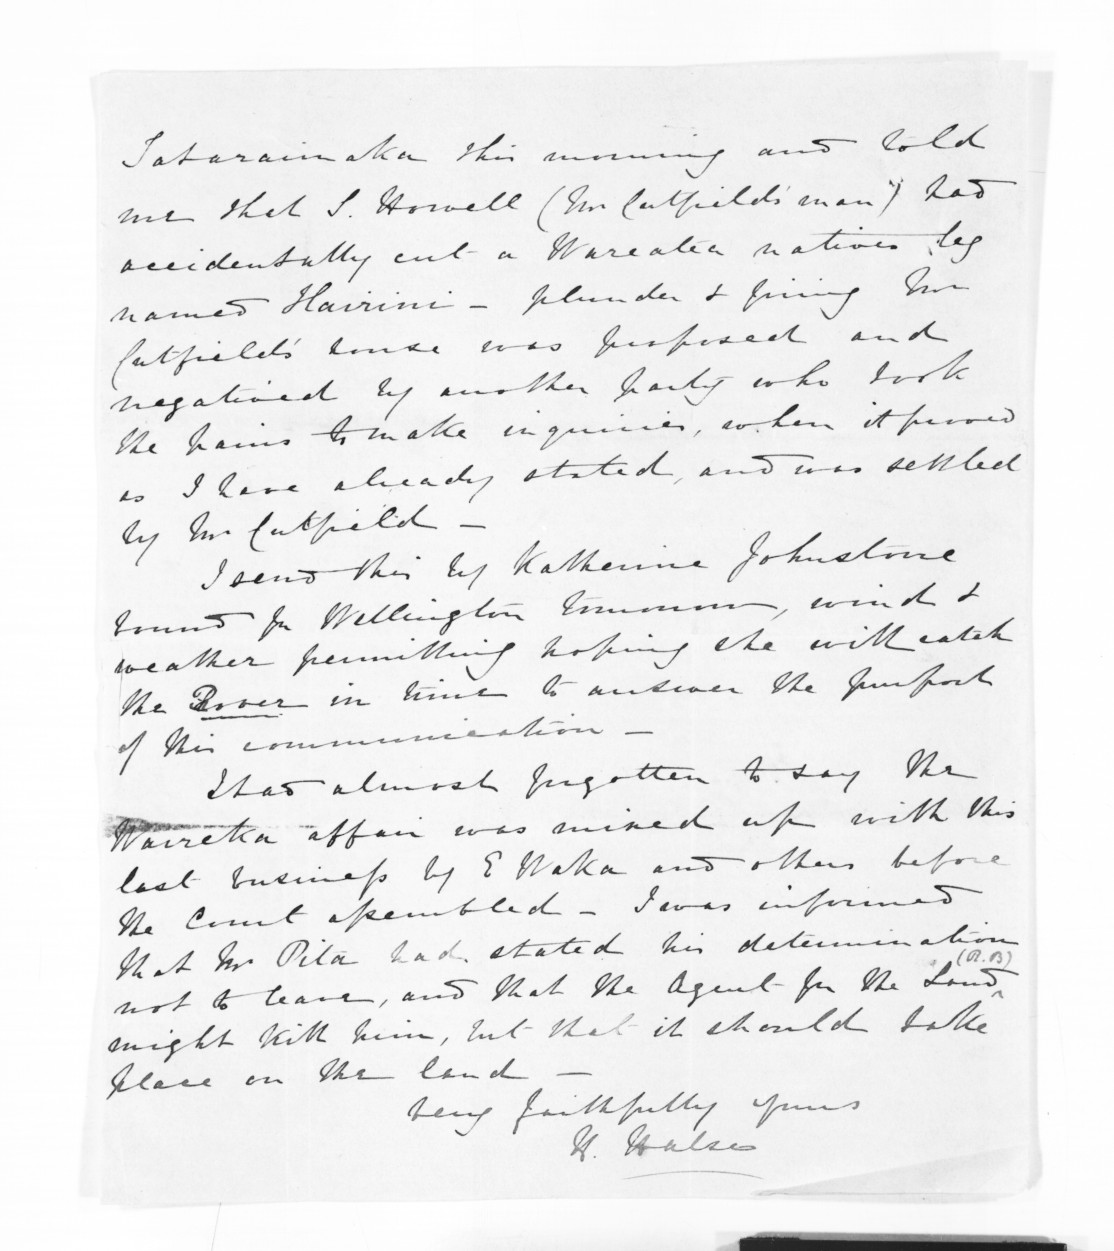 Tataraimaka this morning and told
me that S. Howell (Mr Cutfield's man) had
accidentally cut a Wareatea natives leg
named Hairini - plunder & firing Mr
Cutfield's house was proposed and
negatived by another party who took
the pains to make inquiries, when it proved
as I have already stated, and was settled
by Mr Cutfield -
I send this by Katherine Johnstone
bound for Wellington tomorrow, wind &
weather permitting hoping she will catch
the Rover in time to answer the purport
of this communication -
I had almost forgotten to say the
Waireka affair was mixed up with this
last business by E Waka and others before
the Court assembled - I was informed
that Mr Pita had stated his determination
not to leave, and that the Agent for the Land (N.B)
might kill him, but that it should take
place on the land -
very faithfully yours
H. Halse